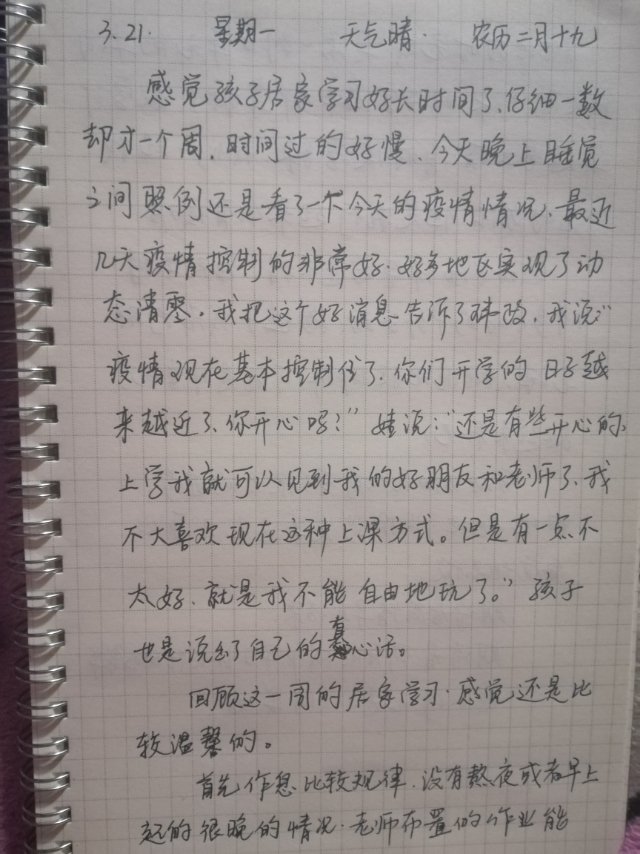 3.21. 星期一 天气晴. 农历二月十九
感觉孩子居家学习好长时间了、仔细一数
却才一个周，时间过的好慢、今天晚上睡觉
之间照例还是看了一下今天的疫情情况、最近
几天疫情控制的非常好、好多地区实现了动
态清零。我把这个好消息告诉了，我说："
疫情现在基本控制住了、你们开学的日子越
来越近了、你开心吗？"娃说："还是有些开心的、
上学我就可以见到我的好朋友和老师了、我
不大喜欢现在这种上课方式。但是有一点不
太好、就是我不能自由地玩了。"孩子
也是说出了自己的真心话。
回顾这一周的居家学习、感觉还是比
较温馨的。
首先作息比较规律、没有熬夜或者早上
起的很晚的情况、老师布置的作业能